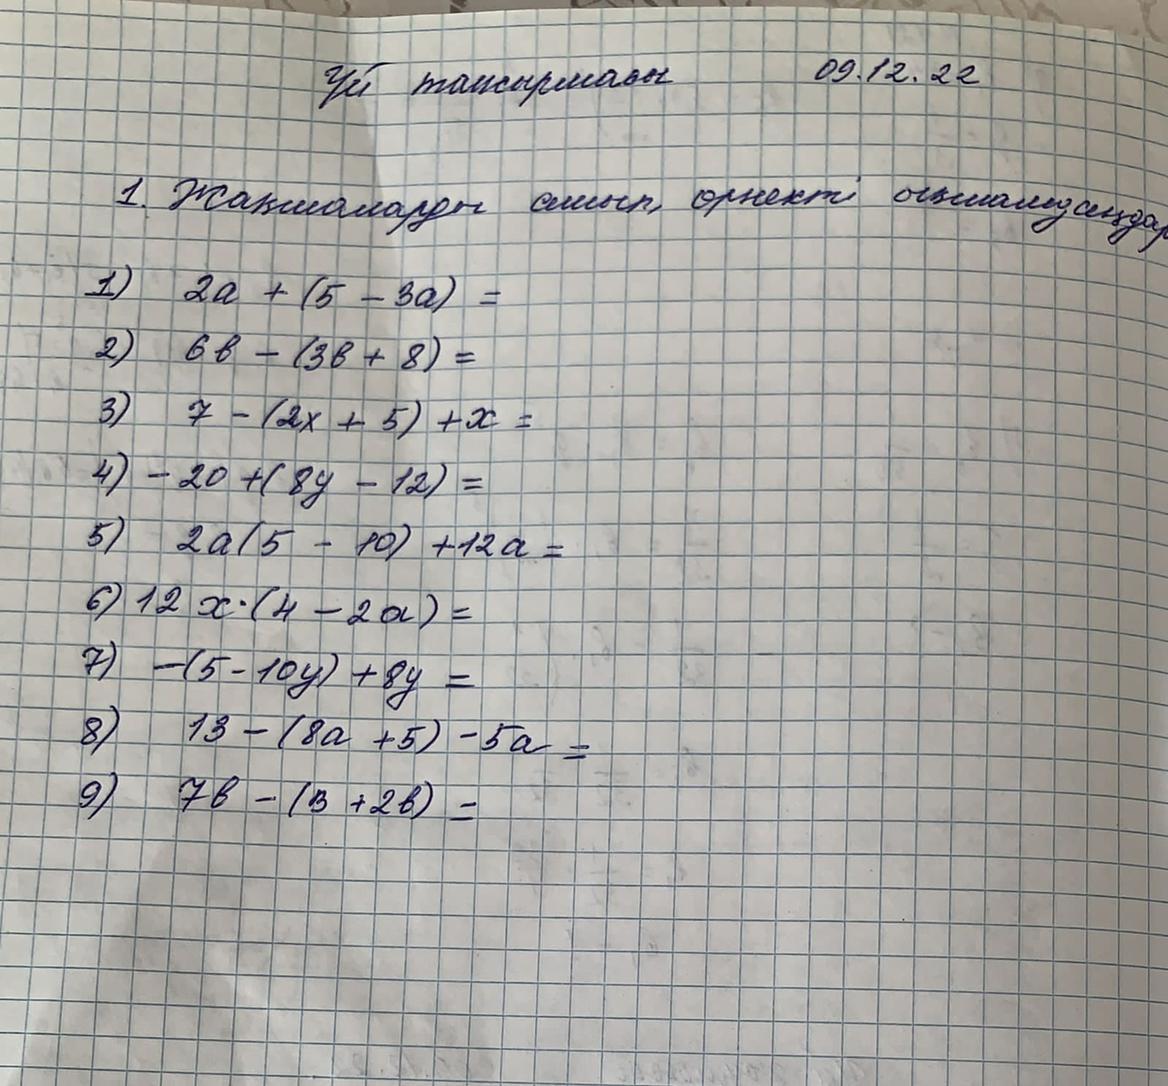 Үй тапсырмасы 09.12.22
1. Жақшаларды ашып, өрнекті ықшамдаңдар
1) 2a + (5 - 3a) =
2) 6в - (3в + 8) =
3) 7 - (2x + 5) + x =
4) - 20 + (8y - 12) =
5) 2a(5 - 10) + 12a =
6) 12 x·(4 - 2a) =
7) -(5 - 10y) + 8y =
8) 13 - (8a + 5) - 5a =
9) 7в - (13 + 2в) =